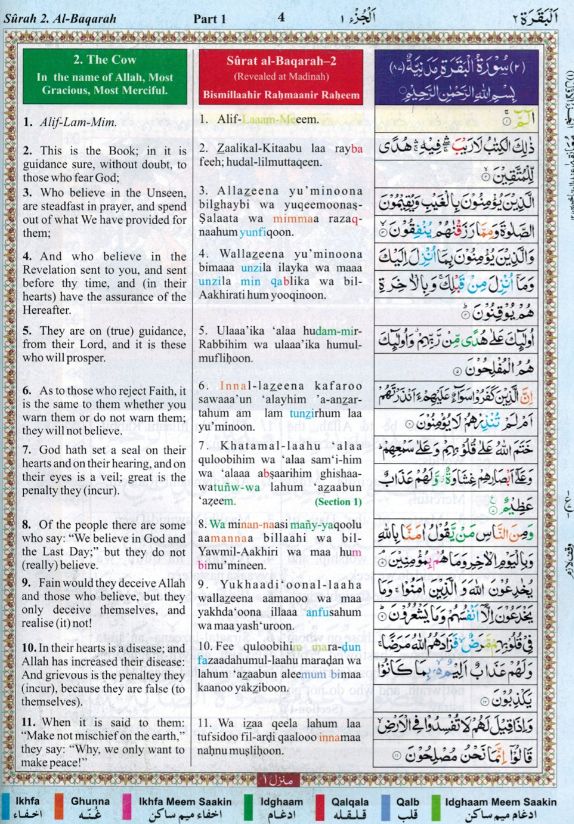 Sûrah 2. Al-Baqarah
Part 1
4
اَلْجُزْء ١
اَلْبَقَرَة ٢
2. The Cow
In the name of Allah, Most
Gracious, Most Merciful.
1. Alif-Lam-Mim.
2. This is the Book; in it is
guidance sure, without doubt, to
those who fear God;
3. Who believe in the Unseen,
are steadfast in prayer, and spend
out of what We have provided for
them;
4. And who believe in the
Revelation sent to you, and sent
before thy time, and (in their
hearts) have the assurance of the
Hereafter.
5. They are on (true) guidance,
from their Lord, and it is these
who will prosper.
6. As to those who reject Faith, it
is the same to them whether you
warn them or do not warn them;
they will not believe.
7. God hath set a seal on their
hearts and on their hearing, and on
their eyes is a veil; great is the
penalty they (incur).
8. Of the people there are some
who say: “We believe in God and
the Last Day;” but they do not
(really) believe.
9. Fain would they deceive Allah
and those who believe, but they
only deceive themselves, and
realise (it) not!
10. In their hearts is a disease; and
Allah has increased their disease:
And grievous is the penaltey they
(incur), because they are false (to
themselves).
11. When it is said to them:
“Make not mischief on the earth,”
they say: “Why, we only want to
make peace!”
Sûrat al-Baqarah–2
(Revealed at Madinah)
Bismillaahir Raḥmaanir Raḥeem
1. Alif-Laaam-Meeem.
2. Z̤aalikal-Kitaabu laa rayba
feeh; hudal-lilmuttaqeen.
3. Allaz̤eena yu’minoona
bilghaybi wa yuqeemoonaṣ-
Ṣalaata wa mimmaa razaq-
naahum yunfiqoon.
4. Wallaz̤eena yu’minoona
bimaaa unzila ilayka wa maaa
unzila min qablika wa bil-
Aakhirati hum yooqinoon.
5. Ulaaa’ika ‘alaa hudam-mir-
Rabbihim wa ulaaa’ika humul-
mufliḥoon.
6. Innal-laz̤eena kafaroo
sawaaa’un ‘alayhim ’a-anz̤ar-
tahum am lam tunz̤irhum laa
yu’minoon.
7. Khatamal-laahu ‘alaa
quloobihim wa ‘alaa sam‘i-him
wa ‘alaaa abṣaarihim ghishaa-
watuñw-wa lahum ‘az̤aabun
‘aẓeem. (Section 1)
8. Wa minan-naasi mañy-yaqoolu
aamannaa billaahi wa bil-
Yawmil-Aakhiri wa maa hum
bimu’mineen.
9. Yukhaadi‘oonal-laaha
wallaz̤eena aamanoo wa maa
yakhda‘oona illaaa anfusahum
wa maa yash‘uroon.
10. Fee quloobihim maraḍun
fazaadahumul-laahu maraḍan wa
lahum ‘az̤aabun aleemum bimaa
kaanoo yakz̤iboon.
11. Wa iz̤aa qeela lahum laa
tufsidoo fil-arḍi qaalooo innamaa
naḥnu muṣliḥoon.
(٢) سُوْرَةُ الْبَقَرَةِ مَدَنِيَّةٌ (٨٧)
بِسْمِ اللّٰهِ الرَّحْمٰنِ الرَّحِيْمِ
الٓمّٓ ۚ ١
ذٰلِكَ الْكِتٰبُ لَا رَيْبَ ۛ فِيْهِ ۛ هُدًى
لِّلْمُتَّقِيْنَ ٢
الَّذِيْنَ يُؤْمِنُوْنَ بِالْغَيْبِ وَيُقِيْمُوْنَ
الصَّلٰوةَ وَمِمَّا رَزَقْنٰهُمْ يُنْفِقُوْنَ ٣
وَالَّذِيْنَ يُؤْمِنُوْنَ بِمَآ اُنْزِلَ اِلَيْكَ
وَمَآ اُنْزِلَ مِنْ قَبْلِكَ ۚ وَبِالْاٰخِرَةِ
هُمْ يُوْقِنُوْنَ ٤
اُولٰٓئِكَ عَلٰى هُدًى مِّنْ رَّبِّهِمْ ۙ وَاُولٰٓئِكَ
هُمُ الْمُفْلِحُوْنَ ٥
اِنَّ الَّذِيْنَ كَفَرُوْا سَوَآءٌ عَلَيْهِمْ ءَاَنْذَرْتَهُمْ
اَمْ لَمْ تُنْذِرْهُمْ لَا يُؤْمِنُوْنَ ٦
خَتَمَ اللّٰهُ عَلٰى قُلُوْبِهِمْ وَعَلٰى سَمْعِهِمْ ۭ
وَعَلٰٓى اَبْصَارِهِمْ غِشَاوَةٌ ۡ وَّلَهُمْ عَذَابٌ
عَظِيْمٌ ٧
وَمِنَ النَّاسِ مَنْ يَّقُوْلُ اٰمَنَّا بِاللّٰهِ
وَبِالْيَوْمِ الْاٰخِرِ وَمَا هُمْ بِمُؤْمِنِيْنَ ٨
يُخٰدِعُوْنَ اللّٰهَ وَالَّذِيْنَ اٰمَنُوْا ۚ وَمَا
يَخْدَعُوْنَ اِلَّآ اَنْفُسَهُمْ وَمَا يَشْعُرُوْنَ ٩
فِيْ قُلُوْبِهِمْ مَّرَضٌ ۙ فَزَادَهُمُ اللّٰهُ مَرَضًا ۚ
وَلَهُمْ عَذَابٌ اَلِيْمٌۢ ۙ بِمَا كَانُوْا
يَكْذِبُوْنَ ١٠
وَاِذَا قِيْلَ لَهُمْ لَا تُفْسِدُوْا فِى الْاَرْضِ ۙ
قَالُوْٓا اِنَّمَا نَحْنُ مُصْلِحُوْنَ ١١
منزل ١
Ikhfa
Ghunna
Ikhfa Meem Saakin
Idghaam
Qalqala
Qalb
Idghaam Meem Saakin
اخفاء
غُنّه
اخفاء ميم ساكن
ادغام
قلقله
قلب
ادغام ميم ساكن